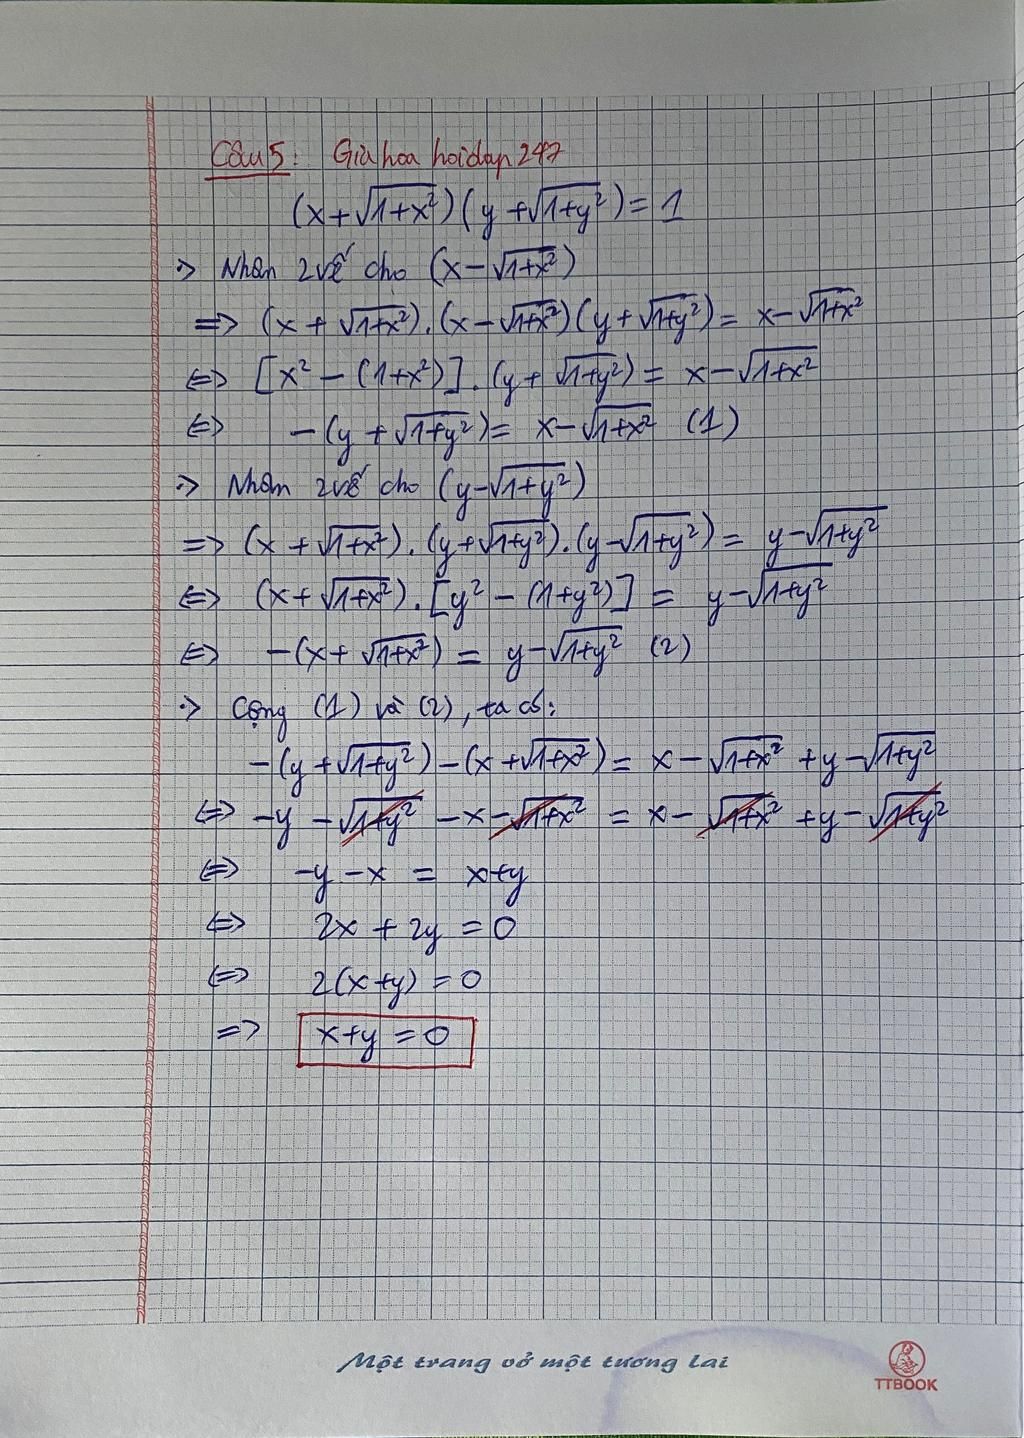 Câu 5: Giahoa hoidap247
(x+√(1+x²))(y+√(1+y²))=1
·> Nhân 2 vế cho (x-√(1+x²))
=> (x+√(1+x²)).(x-√(1+x²))(y+√(1+y²))= x-√(1+x²)
<=> [x²-(1+x²)].(y+√(1+y²))= x-√(1+x²)
<=> -(y+√(1+y²))= x-√(1+x²) (1)
·> Nhân 2 vế cho (y-√(1+y²))
=> (x+√(1+x²)).(y+√(1+y²)).(y-√(1+y²))= y-√(1+y²)
<=> (x+√(1+x²)).[y²-(1+y²)] = y-√(1+y²)
<=> -(x+√(1+x²)) = y-√(1+y²) (2)
·> Cộng (1) và (2), ta có:
-(y+√(1+y²))-(x+√(1+x²))= x-√(1+x²)+y-√(1+y²)
<=> -y-√(1+y²)-x-√(1+x²) = x-√(1+x²)+y-√(1+y²)
<=> -y-x = x+y
<=> 2x+2y=0
<=> 2(x+y)=0
=> x+y=0
Một trang vở một tương lai
TTBOOK